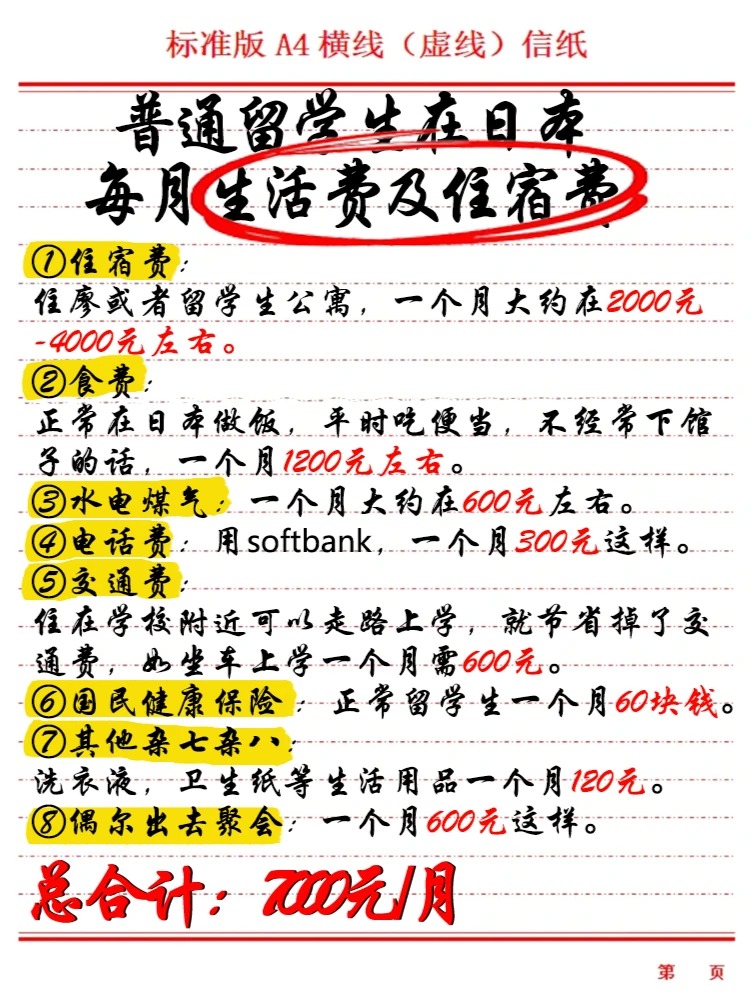 标准版 A4 横线（虚线）信纸
普通留学生在日本
每月生活费及住宿费
①住宿费：
住廖或者留学生公寓，一个月大约在2000元
-4000元左右。
②食费：
正常在日本做饭，平时吃便当，不经常下馆
子的话，一个月1200元左右。
③水电煤气：一个月大约在600元左右。
④电话费：用softbank，一个月300元这样。
⑤交通费：
住在学校附近可以走路上学，就节省掉了交
通费，如坐车上学一个月需600元。
⑥国民健康保险：正常留学生一个月60块钱。
⑦其他杂七杂八：
洗衣液，卫生纸等生活用品一个月120元。
⑧偶尔出去聚会：一个月600元这样。
总合计：7000元/月
第 页